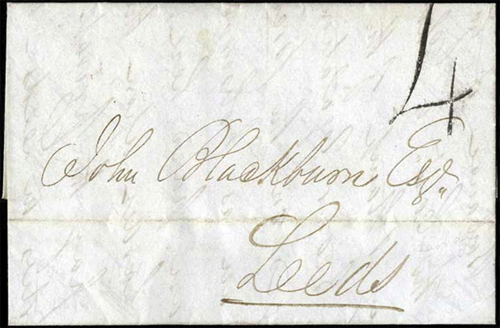 4
John Blackburn Esqr
Leeds